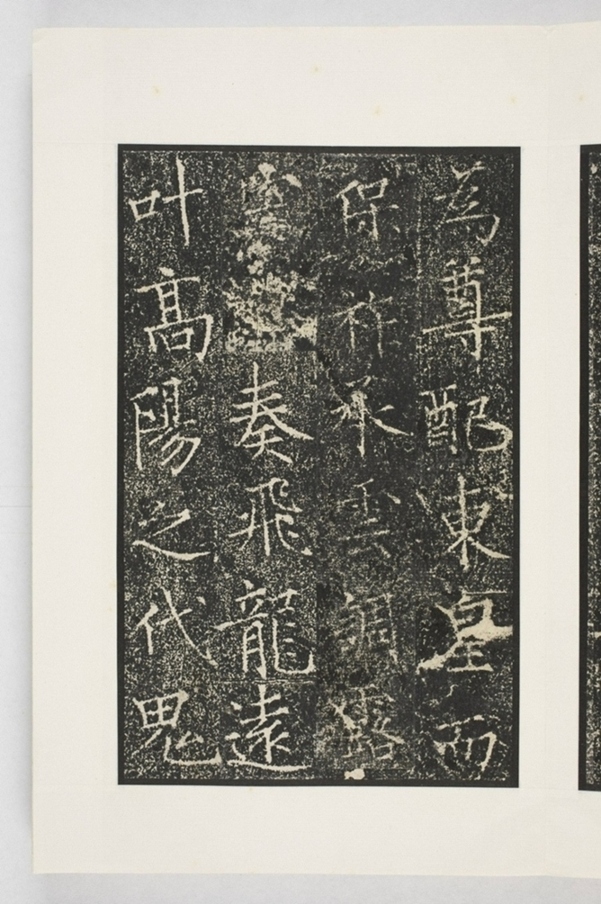 為尊配東皇而
保祚承雲調露
奏飛龍遠
叶高陽之代鬼